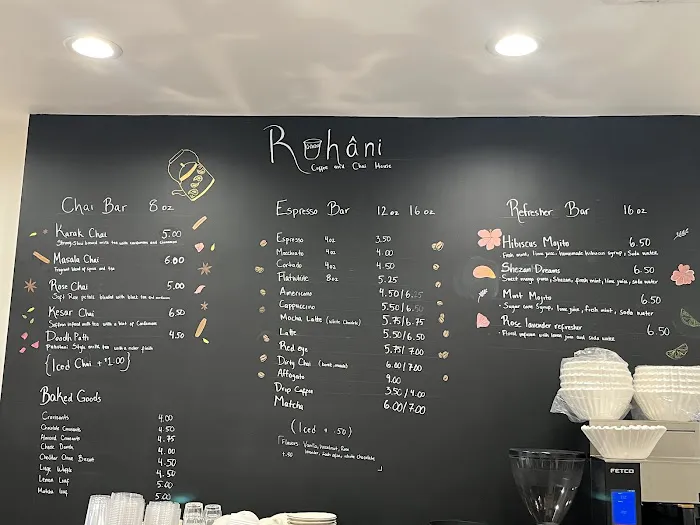 Ruhâni
Coffee and Chai House
Chai Bar 8 oz
Karak Chai 5.00
Strong, slow brewed milk tea with cardamom and cinnamon
Masala Chai 6.00
Fragrant blend of spices and tea
Rose Chai 5.00
Soft Rose petals blended with black tea and cardamom
Kesar Chai 6.50
Saffron infused milk tea with a hint of Cardamom
Doodh Pathi 4.50
Pakistani Style milk tea with a richer finish
{Iced Chai + $1.00}
Baked Goods
Croissants 4.00
Chocolate Croissants 4.50
Almond Croissants 4.75
Cheese Danish 4.00
Cheddar Chive Biscuit 4.50
Liege Waffle 4.50
Lemon Loaf 5.00
Matcha Loaf 5.00
Espresso Bar 12 oz 16 oz
Espresso 4oz 3.50
Macchiato 4oz 4.00
Cortado 4oz 4.50
Flatwhite 8oz 5.25
Americano 4.50/6.25
Cappuccino 5.50/6.50
Mocha Latte (White Chocolate) 5.75/6.75
Latte 5.50/6.50
Red eye 5.75/7.00
Dirty Chai 6.00/7.00
Affogato 9.00
Drip Coffee 3.50/4.00
Matcha 6.00/7.00
(Iced + .50)
Flavors Vanilla, hazelnut, Rose
lavender, white chocolate
+.90
Refresher Bar 16 oz
Hibiscus Mojito 6.50
Fresh mint, lime juice, homemade hibiscus syrup, Soda water
Shezan Dreams 6.50
Sweet mango puree, Shezan, fresh mint, lime juice, soda water
Mint Mojito 6.50
Sugar cane Syrup, lime juice, fresh mint, soda water
Rose lavender refresher 6.50
Floral infusion with lemon juice and soda water
FETCO